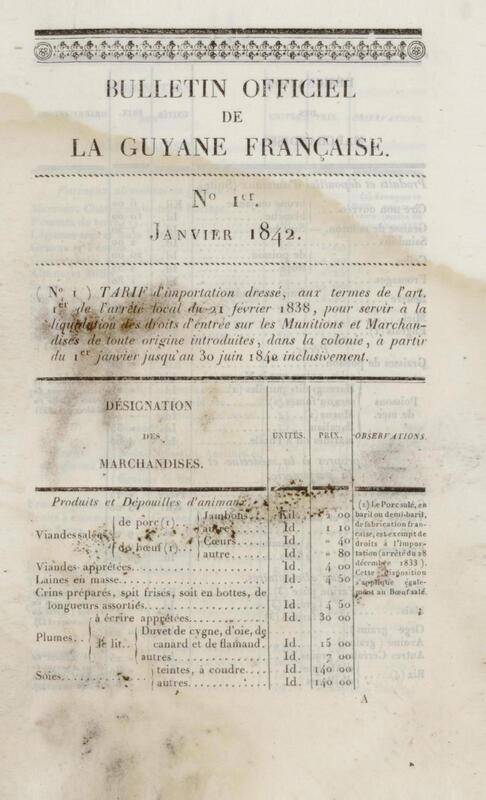 BULLETIN OFFICIEL
DE
LA GUYANE FRANÇAISE.
N° 1er.
JANVIER 1842.
( N° 1 ) TARIF d'importation dressé, aux termes de l'art.
1er de l'arrêté local du 21 février 1838, pour servir à la
liquidation des droits d'entrée sur les Munitions et Marchan-
dises de toute origine introduites, dans la colonie, à partir
du 1er janvier jusqu'au 30 juin 1842 inclusivement.
DÉSIGNATION
DES
MARCHANDISES.
UNITÉS.
PRIX.
OBSERVATIONS.
Produits et Dépouilles d'animaux.
Viandes salées
de porc (1)..
Jambons... Kil. 2 00
autre..... Id. 1 10
de bœuf (1)..
Cœurs.... Id. » 40
autre..... Id. » 80
Viandes apprêtées.......... Id. 4 00
Laines en masse.......... Id. 4 50
Crins préparés, soit frisés, soit en bottes, de
longueurs assortiés.......... Id. 4 50
Plumes..
à écrire apprêtées.......... Id. 30 00
de lit..
Duvet de cygne, d'oie, de
canard et de flamand. Id. 15 00
autres.......... Id. 7 00
Soies..........
teintes, à coudre.... Id. 140 00
autres.......... Id. 140 00
(1) Le Porc salé, en
baril ou demi-baril,
de fabrication fran-
çaise, est exempt de
droits à l'impor-
tation (arrêté du 28
décembre 1833 ).
Cette disposition
s'applique égale-
ment au Bœuf salé.
A